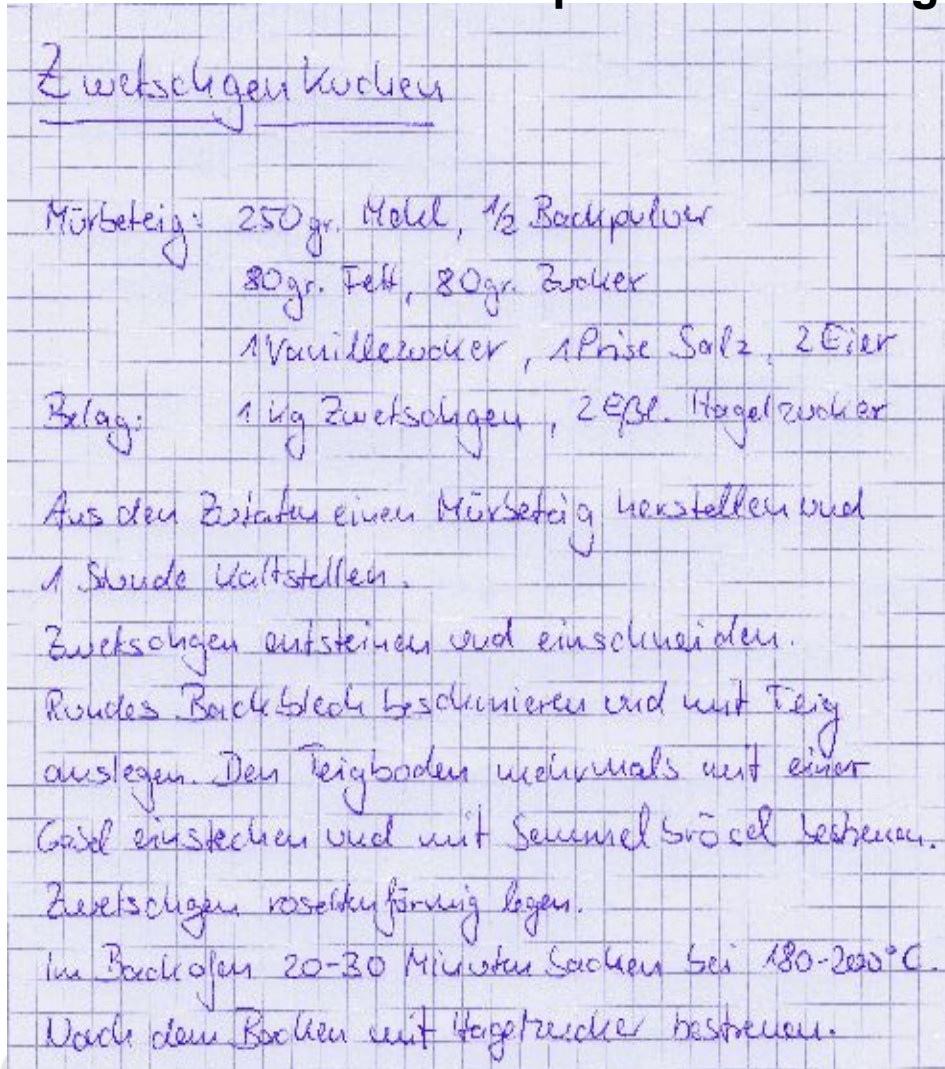 Zwetschgenkuchen
Mürbeteig: 250gr. Mehl, 1/2 Backpulver
80gr. Fett, 80gr. Zucker
1 Vanillezucker, 1 Prise Salz, 2 Eier
Belag: 1 kg Zwetschgen, 2 Eßl. Hagelzucker
Aus den Zutaten einen Mürbeteig herstellen und
1 Stunde kaltstellen.
Zwetschgen entsteinen und einschneiden.
Rundes Backblech beschmieren und mit Teig
auslegen. Den Teigboden mehrmals mit einer
Gabel einstechen und mit Semmelbrösel bestreuen.
Zwetschgen rosettenförmig legen.
im Backofen 20-30 Minuten backen bei 180-200°C.
Nach dem Backen mit Hagelzucker bestreuen.